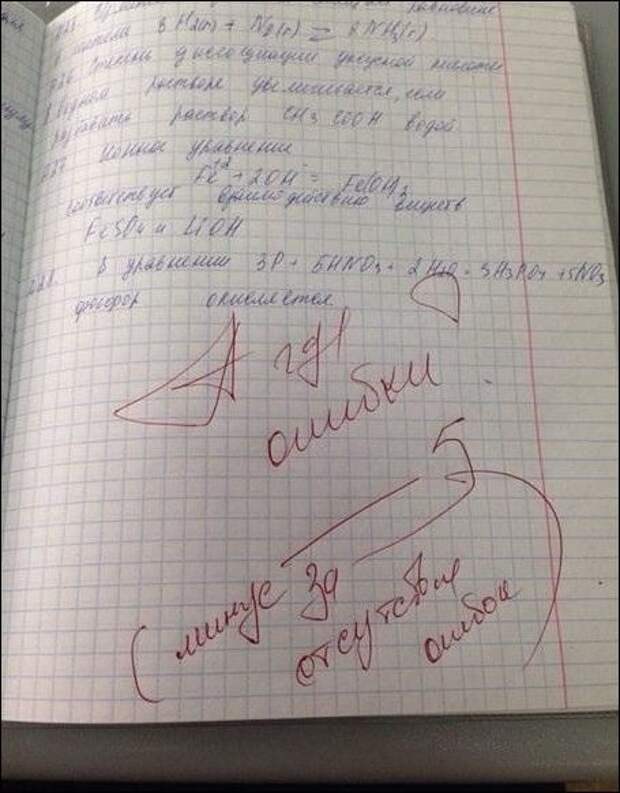 равновесие
3 H2(г) + N2(г) = 2NH3(г)
226 Степень диссоциации уксусной кислоты
в водном растворе увеличивается, если
разбавить раствор CH3COOH водой
227 Ионное уравнение
Fe+2 + 2OH- = Fe(OH)2
соответствует взаимодействию веществ
FeSO4 и LiOH
228. В уравнении 3P + 5HNO3 + 2H2O = 3H3PO4 + 5NO
фосфор окисляется
А где
ошибки
5
(минус за
отсутствие
ошибок)